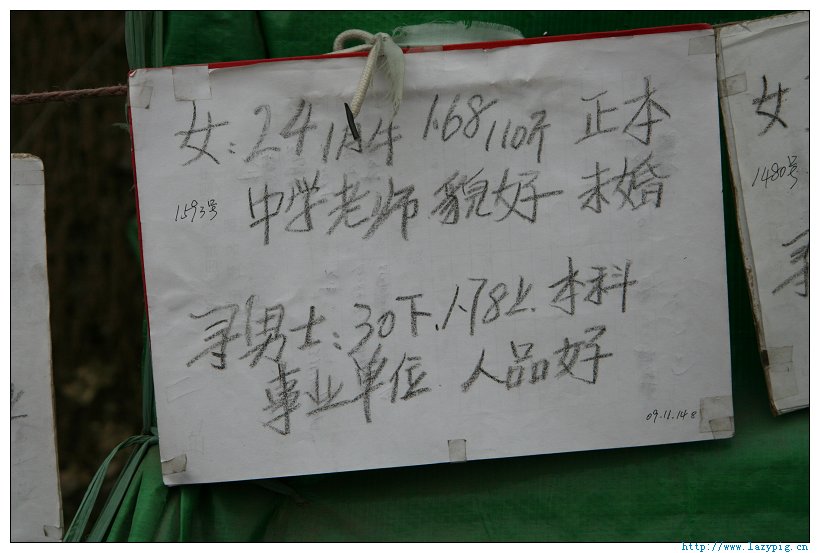 女:24 1周年 1.68 110斤 正本
1593号 中学老师 貌好 未婚
寻男士:30下.1.78上.本科
事业单位 人品好
09.11.14 8
女
1480号
寻
http://www.lazypig.cn